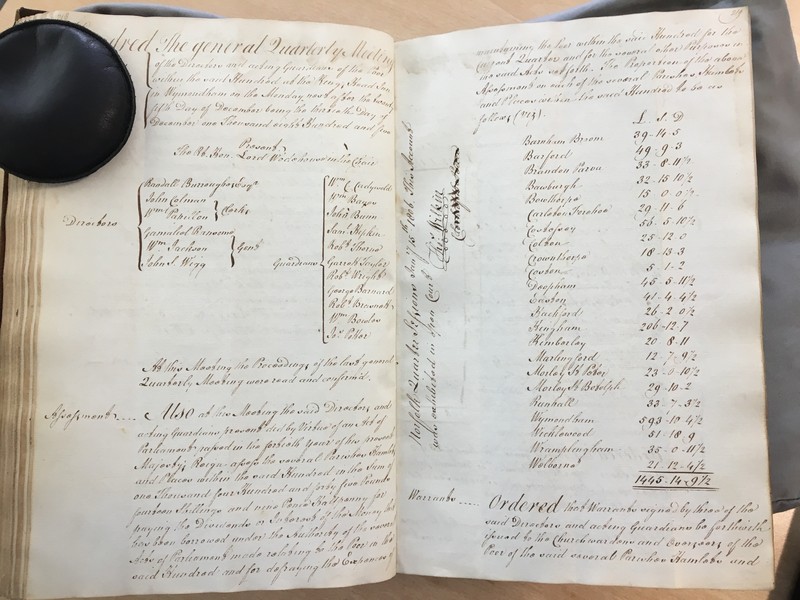 The general Quarterly Meeting
of the Directors and acting Guardians of the Poor
within the said Hundred at the Kings Head Inn
in Wymondham on the Monday next after the twenty
fifth day of December being the thirtieth Day of
December one Thousand eight Hundred and five
Present
The Rt. Hon. Lord Wodehouse in the Chair
Directors
Randall Burroughes Esqr
John Colman
Wm Papillon
Clerks
Gamaliel
Wm Jackson
John S. Wigg
Gent
Guardians
Wm C. Cadywold
Wm Bazor
John Bunn
Saml Pipkin
Robt Thorne
Garrett Taylor
Robt Wright
George Barnard
Robt
Wm Bowles
Jas Potter
At this Meeting the Proceedings of the last general
Quarterly Meeting were read and confirm'd.
Assessments
Also at this Meeting the said Directors and
acting Guardians present did by Virtue of an Act of
Parliament passed in the fortieth Year of his present
Majesty's Reign assess the several Parishes Hamlets
and Places within the said Hundred in the Sum of
one thousand four Hundred and forty five Pounds
fourteen Shillings and nine Pence Halfpenny for
paying the Dividends or Interest of the Money that
has been borrowed under the Authority of the several
Acts of Parliament made relating to the Poor in the
said Hundred and for defraying the Expences of
Norfolk Quarter Sessions Jany 15th 1806 This Account
was exhibited in open Court
maintaining the Poor within the said Hundred for the
current Quarter and for the several other Purposes in
the said Acts set forth. The Proportion of the above
Assessment on each of the several Parishes Hamlets
and Places within the said Hundred to be as
follows (viz).
L. S. D
Barnham Broom 39-14-5
Barford 49-9-3
Brandon Parva 33-8-11½
Bawburgh 32-15-10½
Bowthorpe 15-0-0½
Carleton Forehoe 29-11-6
Costessey 56-5-10½
Colton 25-12-0
Crownthorpe 18-13-3
Coston 5-1-2
Deopham 45-5-11½
Easton 41-4-4½
Hackford 26-2-0½
Hingham 206-12-7
Kimberley 20-8-11
Marlingford 12-7-9½
Morley St Peter 23-0-10½
Morley St Botolph 29-10-2
Runhall 33-7-3½
Wymondham 593-10-4½
Wicklewood 51-18-9
Wramplingham 35-0-11½
Welborne 21-12-4½
1445-14-9½
Warrants
Ordered that Warrants signed by three of the
said Directors and acting Guardians be forthwith
issued to the Churchwardens and Overseers of the
Poor of the said several Parishes Hamlets and